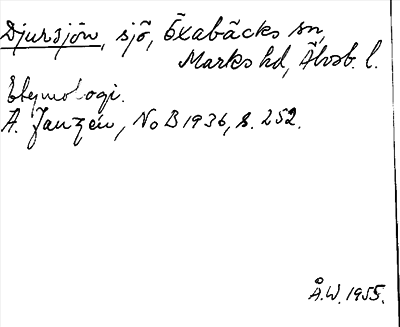 Djursjön, sjö, Öxabäcks sn,
Marks hd, Älvsb. l.
Etymologi.
A. Janzén, NoB 1936, s. 252.
Å.W. 1955.